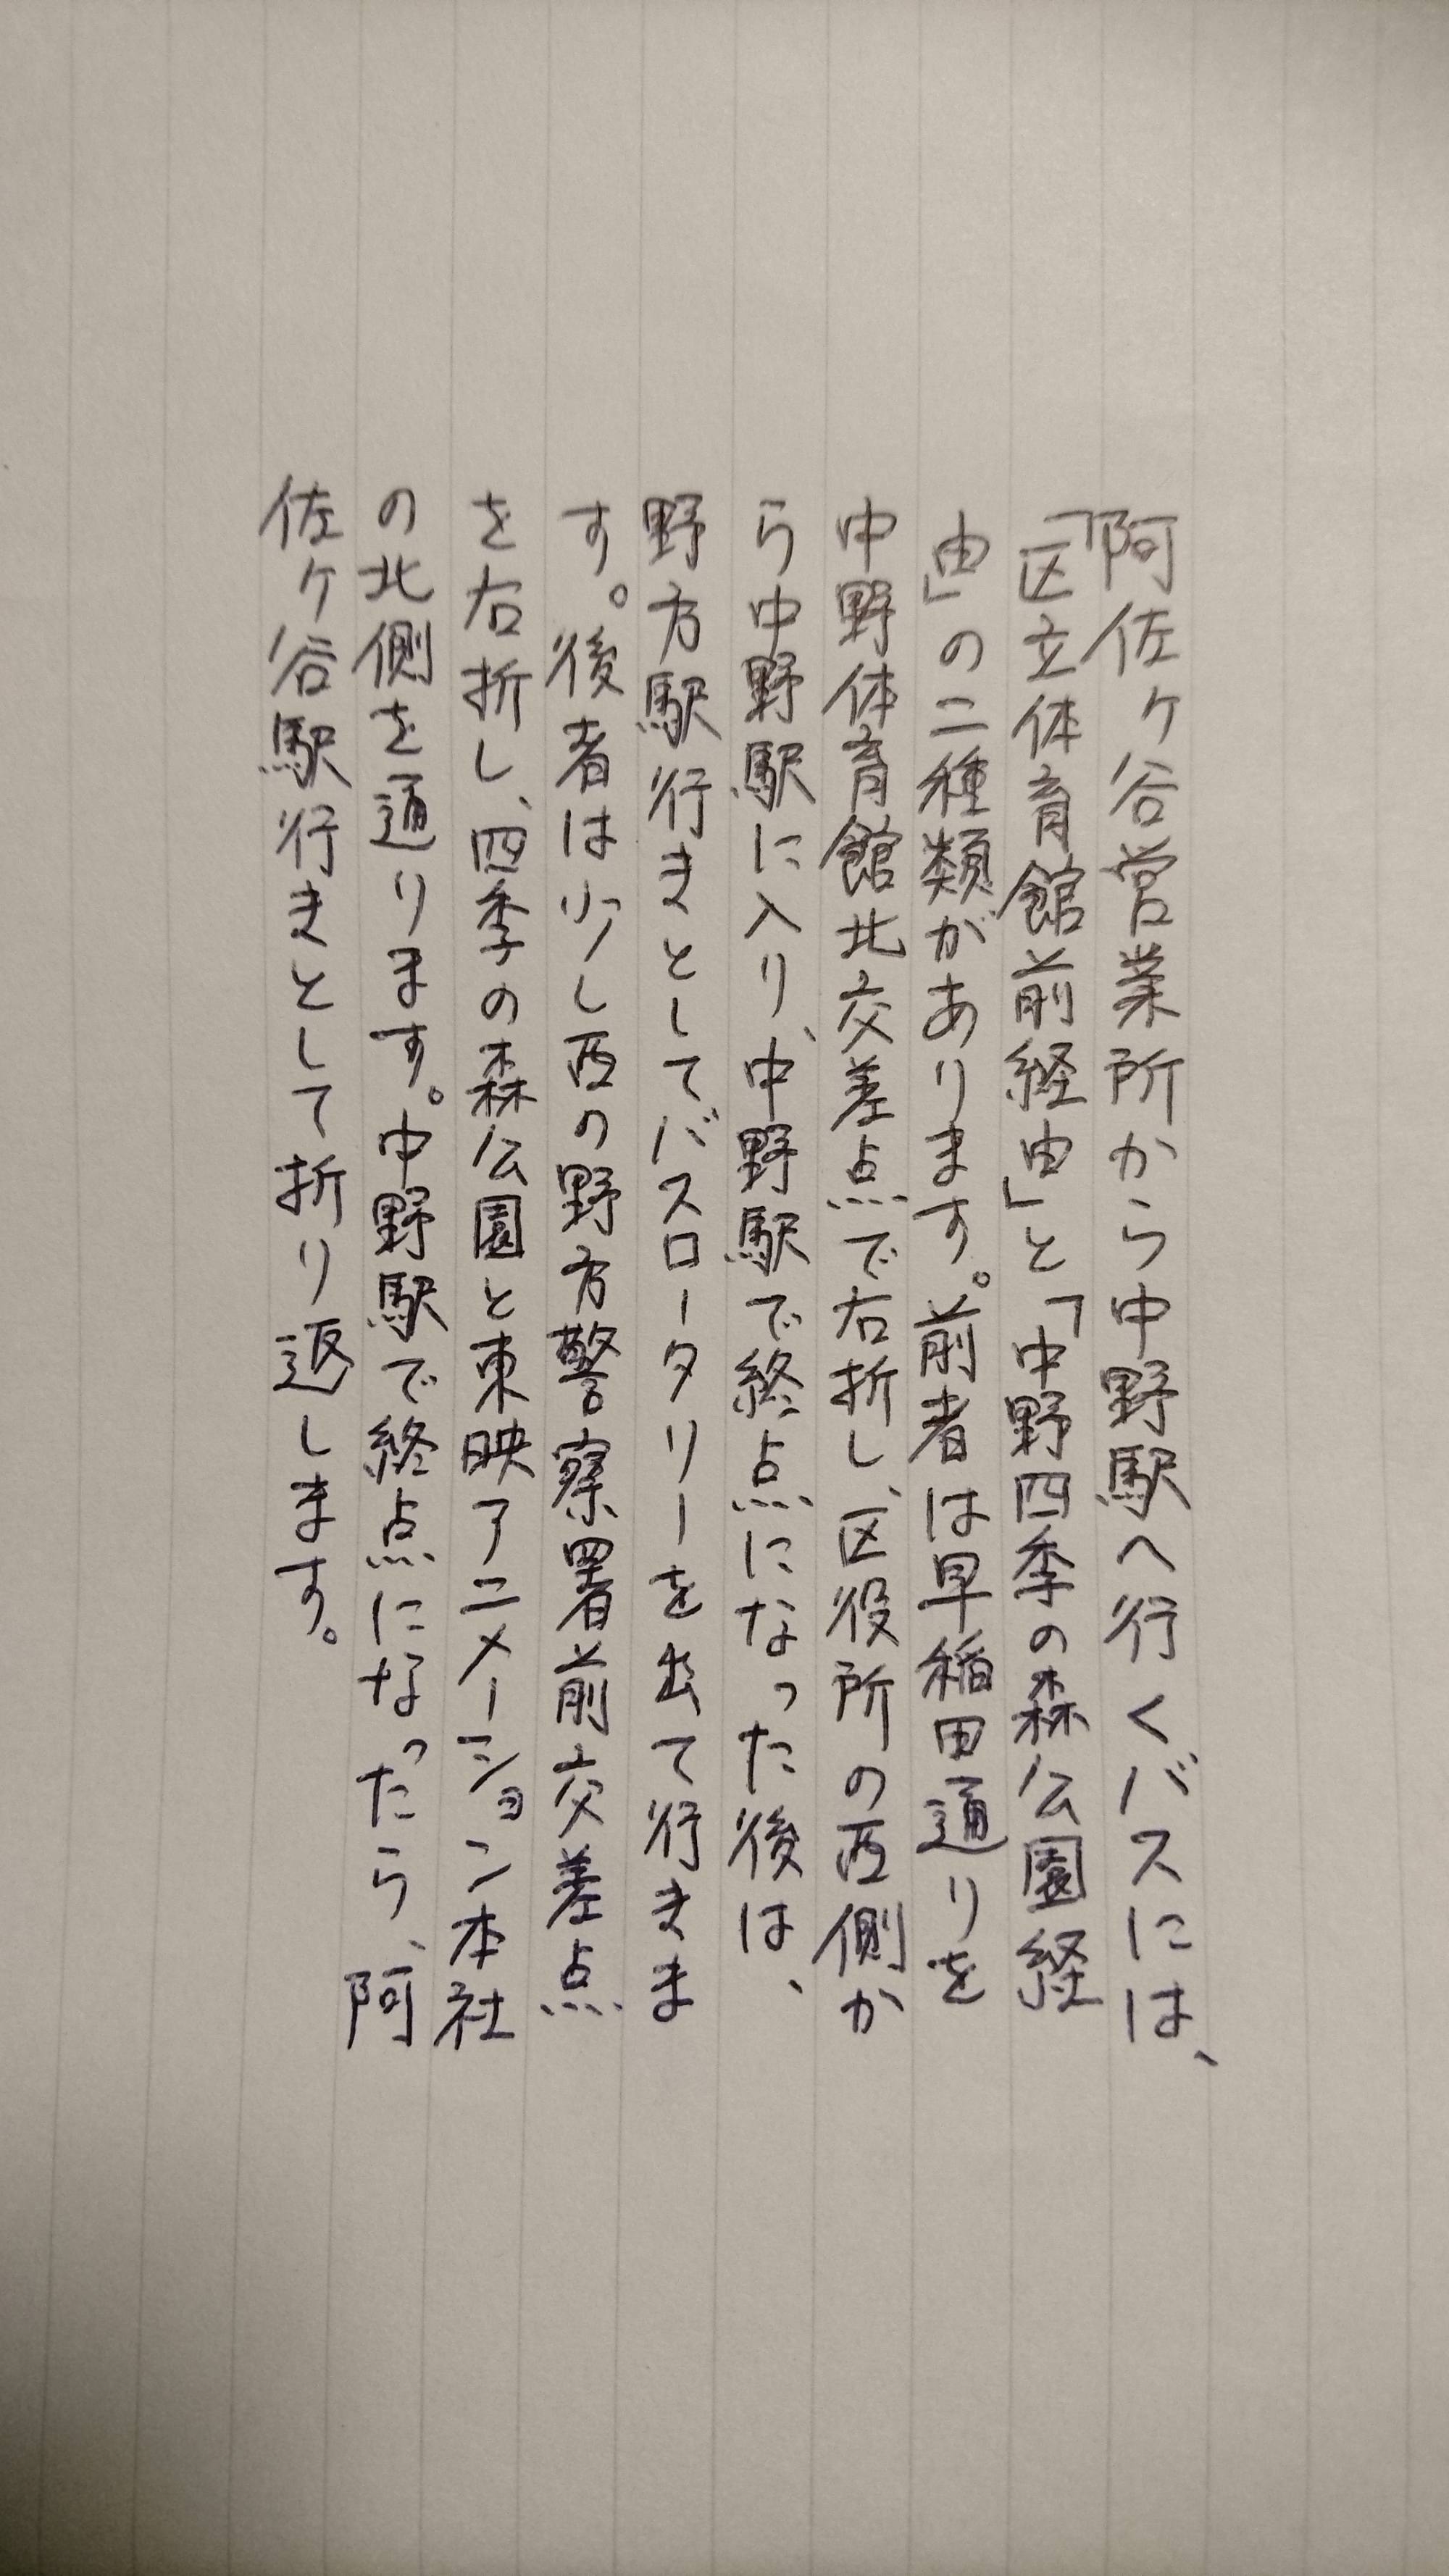 阿佐ヶ谷営業所から中野駅へ行くバスには、
「区立体育館前経由」と「中野四季の森公園経
由」の二種類があります。前者は早稲田通りを
中野体育館北交差点で右折し、区役所の西側か
ら中野駅に入り、中野駅で終点になった後は、
野方駅行きとしてバスロータリーを出て行きま
す。後者は少し西の野方警察署前交差点
を右折し、四季の森公園と東映アニメーション本社
の北側を通ります。中野駅で終点になったら、阿
佐ヶ谷駅行きとして折り返します。